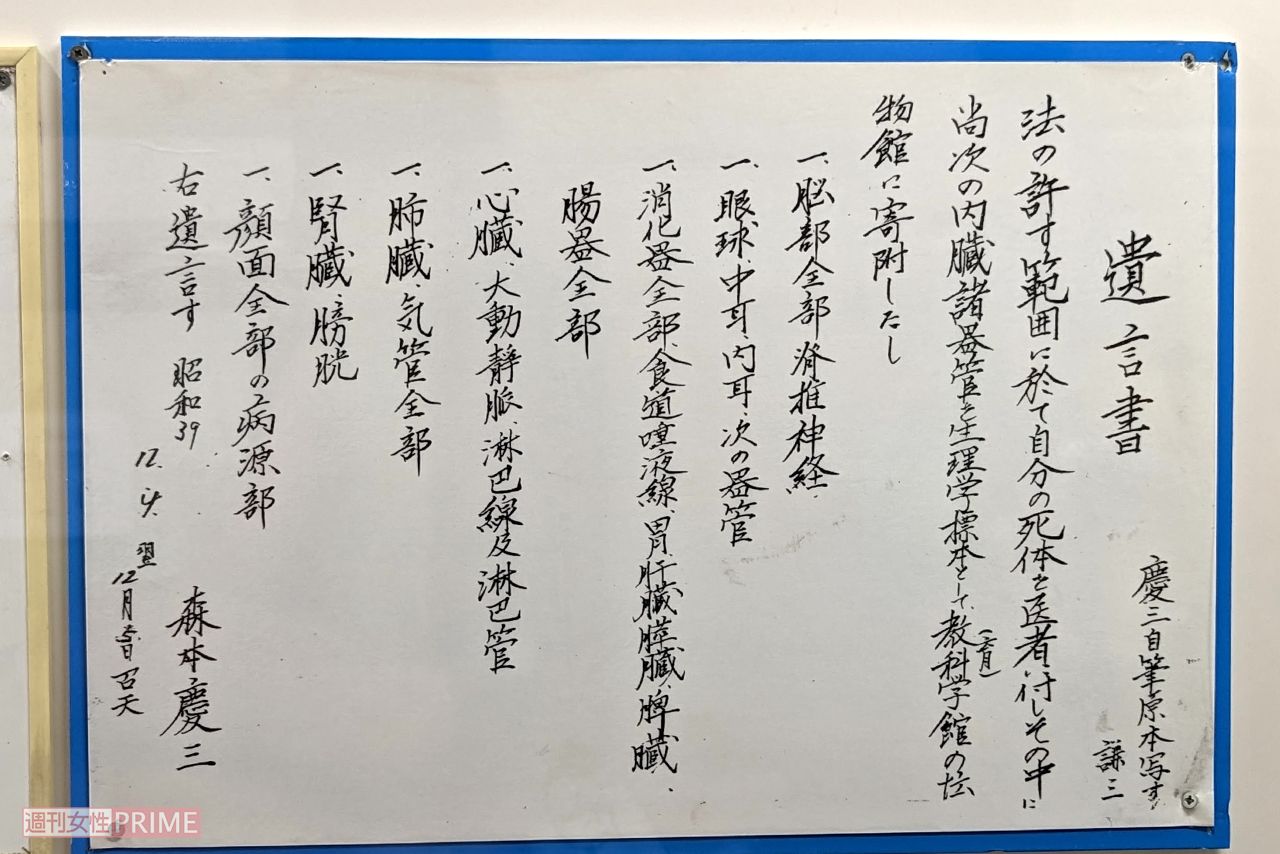 遺言書
慶三自筆原本写す
謙三
法の許す範囲に於て自分の死体を医者に付しその中に
尚次の内臓諸器管を生理学標本として、教科学館の
物館に寄附したし
一、脳部全部脊推神経、
一、眼球、中耳、内耳、次の器管
一、消化器全部、食道唾液線、胃、肝臓、膵臓、脾臓、
腸器全部
一、心臓、大動静脈、淋巴線及淋巴管
一、肺臓、気管全部
一、腎臓、膀胱
一、顔面全部の病源部
右遺言す 昭和39
12. 4. 翌
12月 召天
森本慶三
週刊女性PRIME